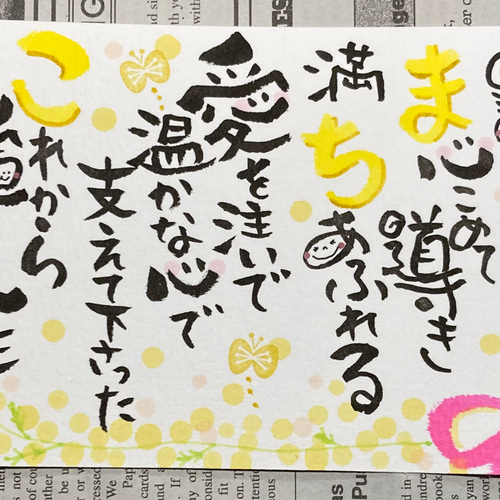 ま心こめて導き
満ちあふれる
愛を注いで
温かな心で
支えて下さった
これから